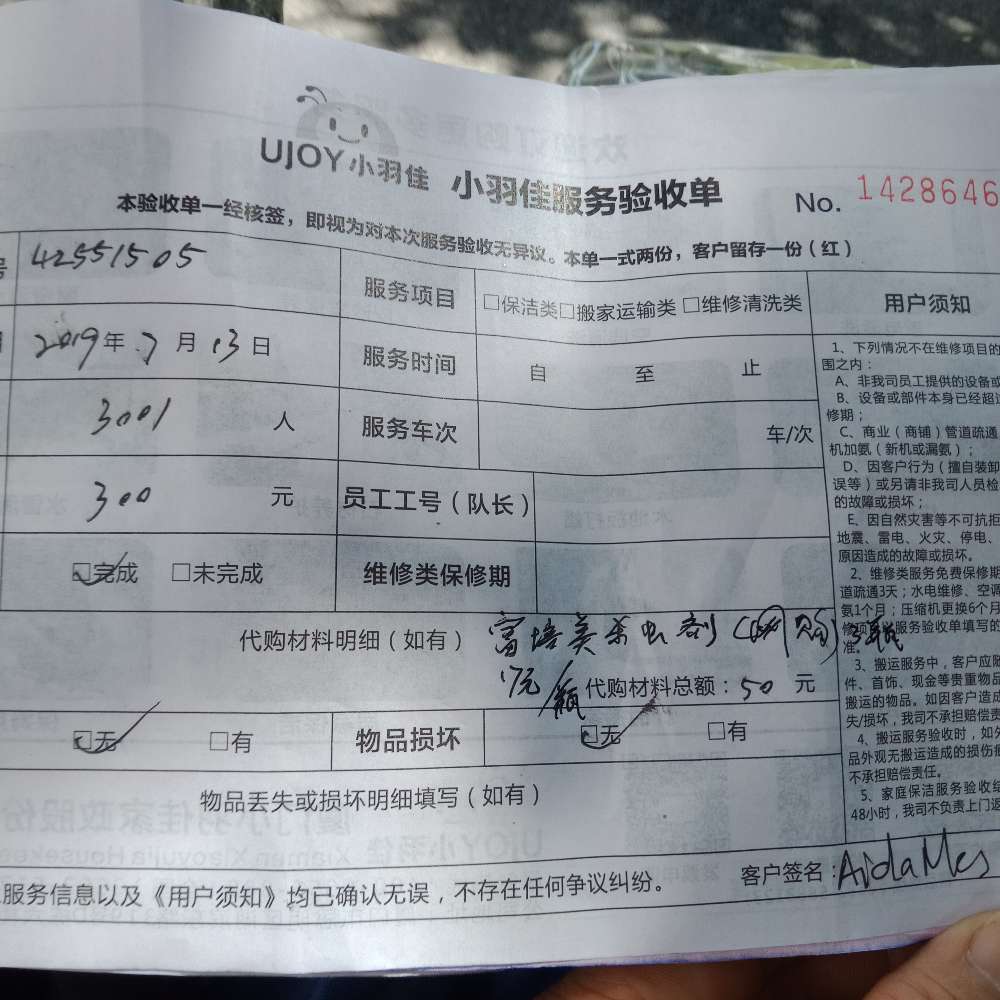 UJOY小羽佳
小羽佳服务验收单 No. 1428646
本验收单一经核签，即视为对本次服务验收无异议。本单一式两份，客户留存一份（红）
号 42551505 服务项目 □保洁类□搬家运输类 □维修清洗类
2019年 7月 13日 服务时间 自 至 止
3001 人 服务车次 车/次
300 元 员工工号（队长）
□完成 □未完成 维修类保修期
代购材料明细（如有） 富培美杀虫剂（网购）3瓶
17元/瓶 代购材料总额：50 元
□无 □有 物品损坏 □无 □有
物品丢失或损坏明细填写（如有）
服务信息以及《用户须知》均已确认无误，不存在任何争议纠纷。 客户签名：
用户须知
1、下列情况不在维修项目的
围之内：
A、非我司员工提供的设备或
B、设备或部件本身已经超过
修期；
C、商业（商铺）管道疏通
机加氨（新机或漏氨）；
D、因客户行为（擅自装卸
误等）或另请非我司人员检
的故障或损坏；
E、因自然灾害等不可抗拒
地震、雷电、火灾、停电、
原因造成的故障或损坏。
2、维修类服务免费保修期
道疏通3天；水电维修、空调
氨1个月；压缩机更换6个月
服务验收单填写的
准。
3、搬运服务中，客户应随
件、首饰、现金等贵重物品
搬运的物品。如因客户造成
失/损坏，我司不承担赔偿责
4、搬运服务验收时，如外
品外观无搬运造成的损伤
不承担赔偿责任。
5、家庭保洁服务验收结
48小时，我司不负责上门返